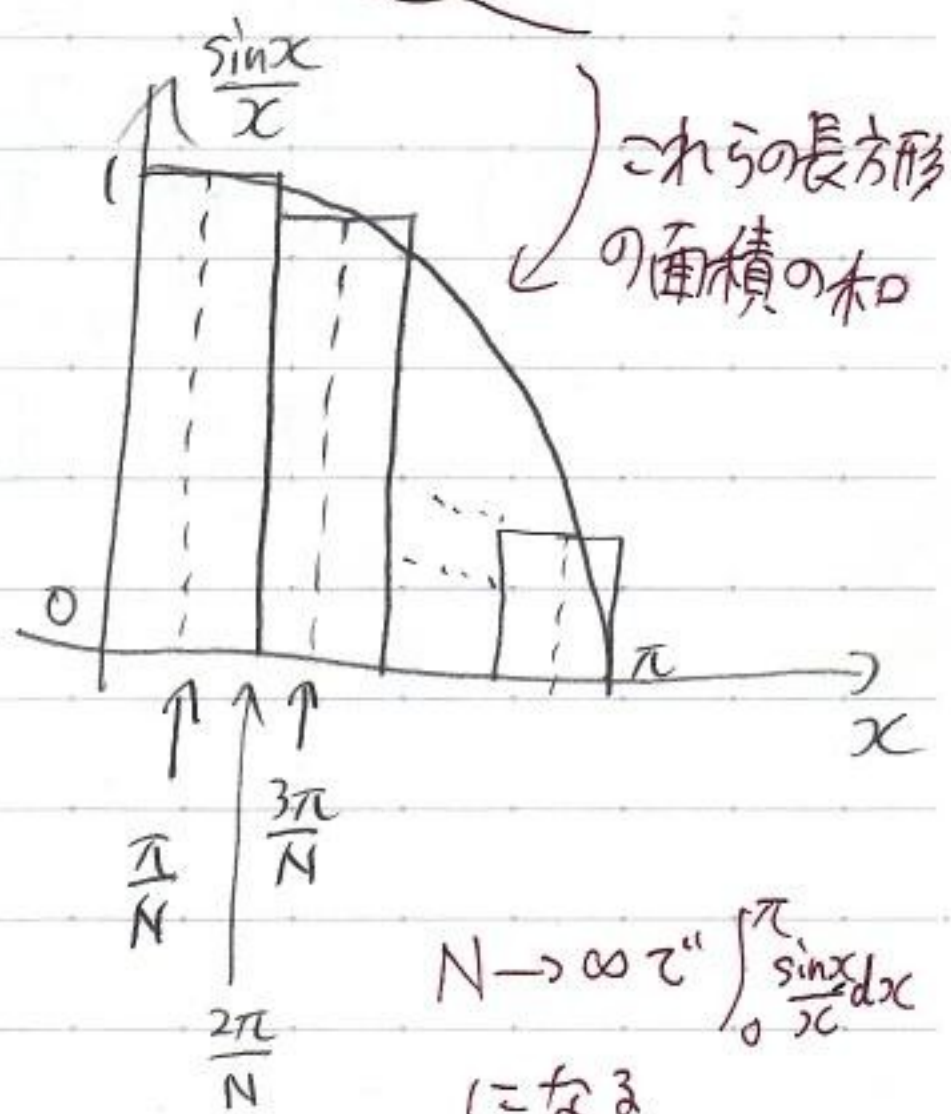 sinx/x
これらの長方形
の面積の和
1
0
π
x
π/N
3π/N
2π/N
N→∞で ∫₀^π sinx/x dx
になる